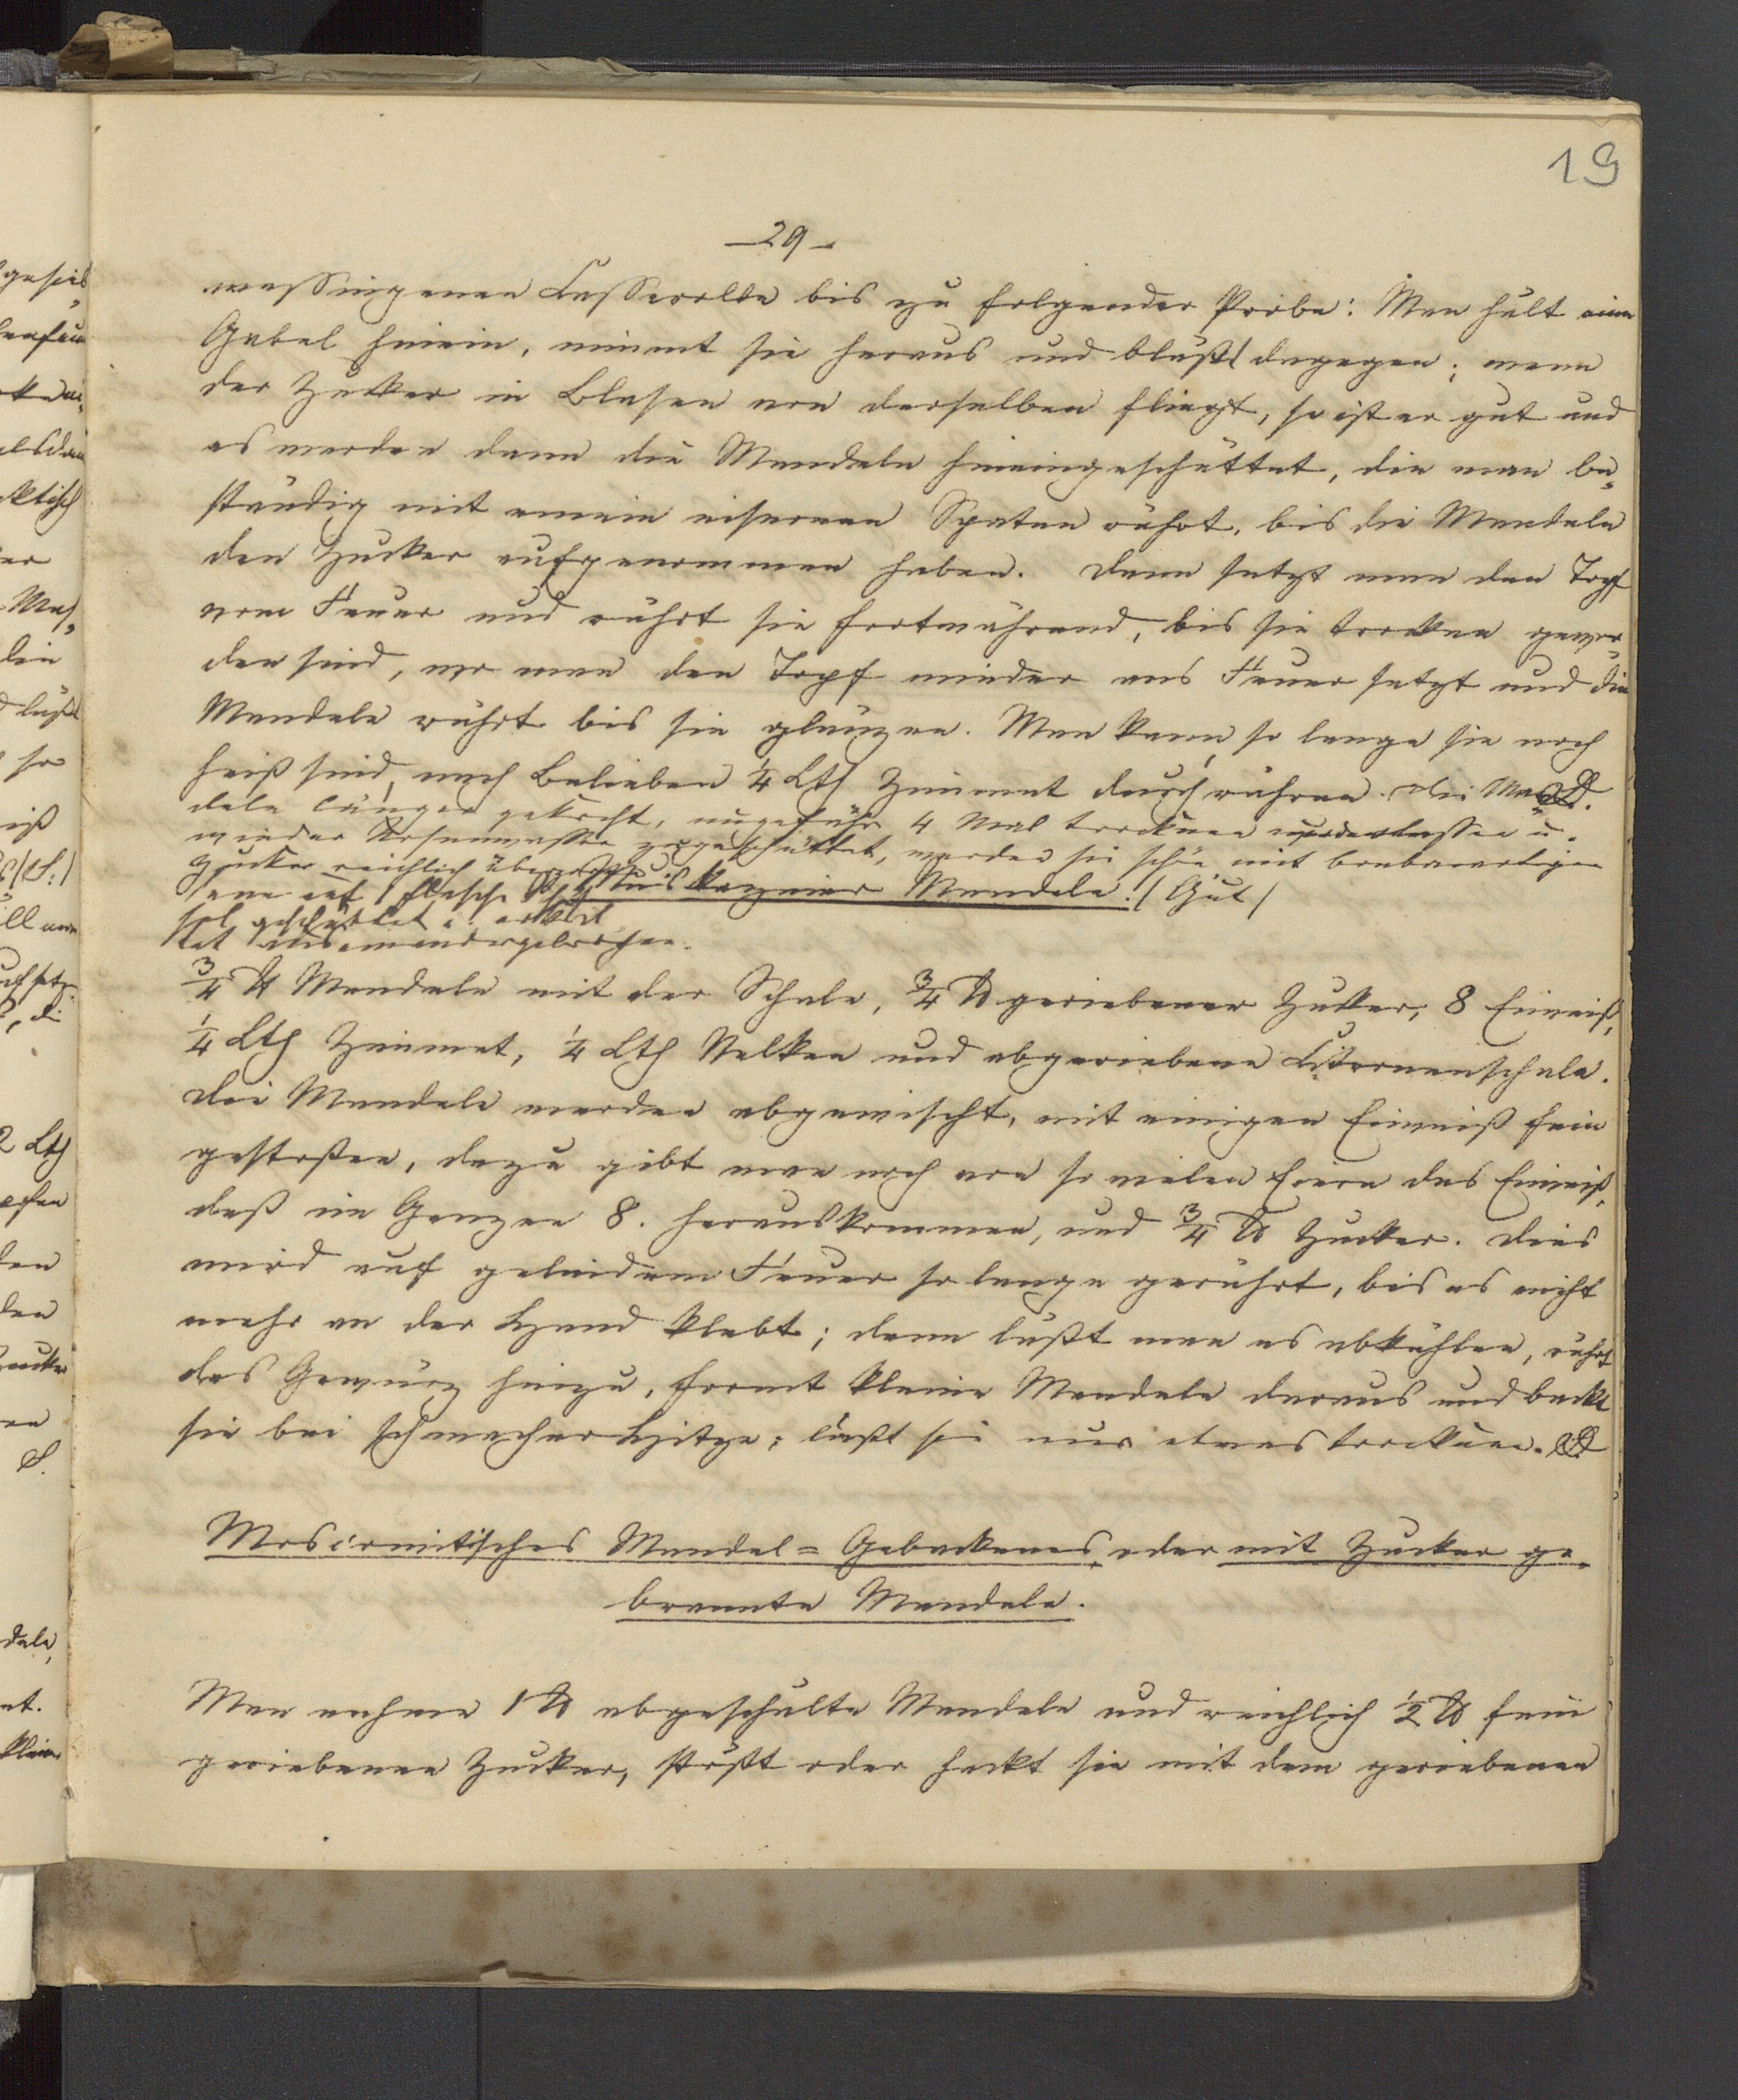 19
-29-
messingenen Casserolle bis zu folgender Probe: Man hält eine
Gabel hinein, nimmt sie heraus und bläßt dagegen; wenn
der Zucker in Blasen von derselben fliegt, so ist er gut und
es werden dann die Mandeln hineingeschüttet, die man be-
ständig mit einem eisernen Spaten rührt, bis die Mandeln
den Zucker aufgenommen haben. Dann setzt man den Topf
vom Feuer und rührt sie fortwährend, bis sie trocken gewor-
den sind, wo man den Topf wieder ans Feuer setzt und die
Mandeln rührt bis sie glänzen. Man kann so lange sie noch
heiß sind, nach Belieben 1/4 Lth Zimmet durchrühren. Die Man-
deln länger gekocht, ungefähr 4 Mal trocknen werden lassen u.
wieder Rosenwasser zugeschüttet, werden sie schön mit
Zucker reichlich überzogen
dann auf
geschüttet u.
auseinandergebrochen.
Muskazonier Mandeln. (Gut)
3/4 ℔ Mandeln mit der Schale, 3/4 ℔ geriebener Zucker, 8 Eiweiß,
1/4 Lth Zimmet, 1/4 Lth Nelken und abgeriebene Citronenschale.
Die Mandeln werden abgewischt, mit einigen Eiweiß fein
gestoßen, dazu gibt man noch von so vielen Eiern das Eiweiß,
daß im Ganzen 8. herauskommen, und 3/4 ℔ Zucker. Dies
wird auf gelindem Feuer so lange gerührt, bis es nicht
mehr an der Hand klebt; dann läßt man es abkühlen, rührt
das Gewürz hinzu, formt kleine Mandeln daraus und backt
sie bei schwacher Hitze; läßt sie nur etwas trocknen.
Moscovitisches Mandel=Gebackenes, oder mit Zucker ge-
brannte Mandeln.
Man nehme 1 ℔ abgeschälte Mandeln und reichlich 1/2 ℔ fein
geriebenen Zucker, stößt oder hackt sie mit dem geriebenen